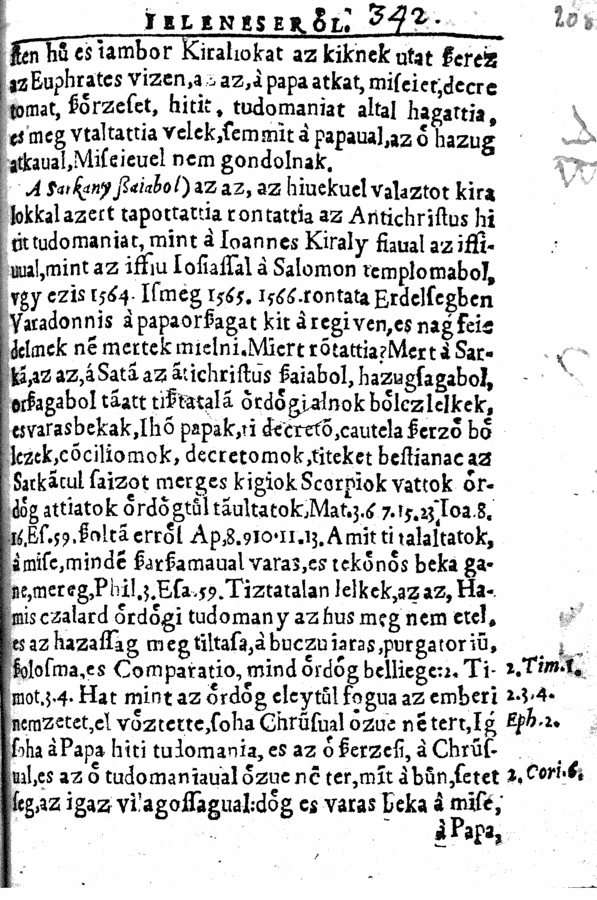 IELENESERŐL. 342. 208
sten hű es iambor Kiraliokat az kiknek utat ßerez
az Euphrates vizen, az az, à papa atkat, miseiet, decre
tomat, ßőrzeset, hitit, tudomaniat altal hagattia,
es meg vtaltattia velek, semmit à papaual, az ő hazug
atkaual, Miseieuel nem gondolnak.
A Sarkany ßaiabol) az az, az hiuekuel valaztot kira
lokkal azert tapottattia rontattia az Antichristus hi
tit tudomaniat, mint à Ioannes Kiraly fiaual az iffi-
uual, mint az iffiu Iosiassal à Salomon templomabol,
vgy ezis 1564. Ismeg 1565. 1566. rontata Erdelsegben
Varadonnis à papaorßagat kit à regi ven, es nag feie
delmek nē mertek mielni. Miert rōtattia? Mert à Sar-
kā, az az, á Satā az ātichristus ßaiabol, hazugsagabol,
orßagabol tāatt tißtatalā ördőgi, alnok bőlcz lelkek,
es varasbekak, Ihō papak, ti decretō, cautela ßerző bő
lczek, cōciliomok, decretomok, titeket bestianac az
Sarkācul saizot merges kigiok Scorpiok vattok őr-
dőg attiatok őrdőgtűl tāultatok, Mat. 3. 6 7. 15. 23. Ioa. 8.
16. Es. 59. ßoltā erről Ap, 8. 9 10. 11. 13. Amit ti talaltatok,
à mise, mindē ßarßamaual varas, es tekőnős beka ga-
ne, mereg, Phil. 3. Esa. 59. Tiztatalan lelkek, az az, Ha-
mis czalard őrdőgi tudomany az hus meg nem etel,
es az hazassag meg tiltasa, à buczu iaras, purgatoriū,
ßolosma, es Comparatio, mind őrdőg belliege: 2. Ti-
2. Tim. 1.
mot, 3. 4. Hat mint az őrdőg eleytűl fogua az emberi
2. 3. 4.
nemzetet, el vőztette, soha Chrűsual őzue nē tert, Ig
Eph. 2.
soha à Papa hiti tudomania, es az ő ßerzesi, à Chrűs-
ual, es az ő tudomaniaual őzue nē ter, mīt à bűn, setet
2. Cori. 6.
seg, az igaz vilagossagual: dőg es varas beka à mise,
à Papa,